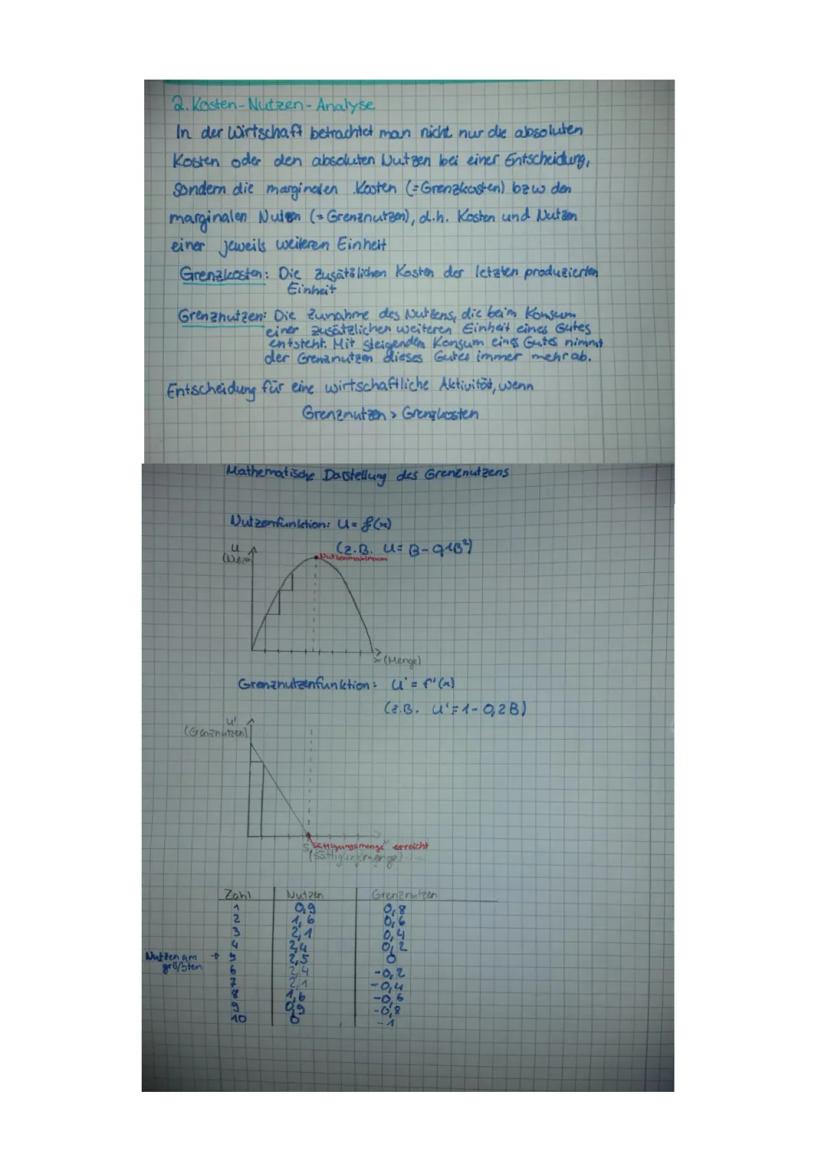 2. Kosten-Nutzen-Analyse
In der Wirtschaft betrachtet man nicht nur die absoluten
Kosten oder den absoluten Nutzen bei einer Entscheidung,
sondern die marginalen Kosten (=Grenzkosten) bzw den
marginalen Nutzen (=Grenznutzen), d.h. Kosten und Nutzen
einer jeweils weiteren Einheit
Grenzkosten: Die zusätzlichen Kosten der letzten produzierten
Einheit
Grenznutzen: Die Zunahme des Nutzens, die beim Konsum
einer zusätzlichen weiteren Einheit eines Gutes
entsteht. Mit steigenden Konsum eines Gutes nimmt
der Grenznutzen dieses Gutes immer mehr ab.
Entscheidung für eine wirtschaftliche Aktivität, wenn
Grenznutzen > Grenzkosten
Mathematische Darstellung des Grenznutzens
Nutzenfunktion: U = f(x)
(z.B. U = B - 0,1B²)
U
Nutzenmaximum
x (Menge)
Grenznutzenfunktion: U' = f'(x)
(z.B. U' = 1 - 0,2B)
U'
(Grenznutzen)
5 "Sättigungsmenge" erreicht
(Sättigungsmenge)
Zahl Nutzen Grenznutzen
1 0,9 0,8
2 1,6 0,6
3 2,1 0,4
4 2,4 0,2
Nutzen am größten → 5 2,5 0
6 2,4 -0,2
7 2,1 -0,4
8 1,6 -0,6
9 0,9 -0,8
10 0 -1